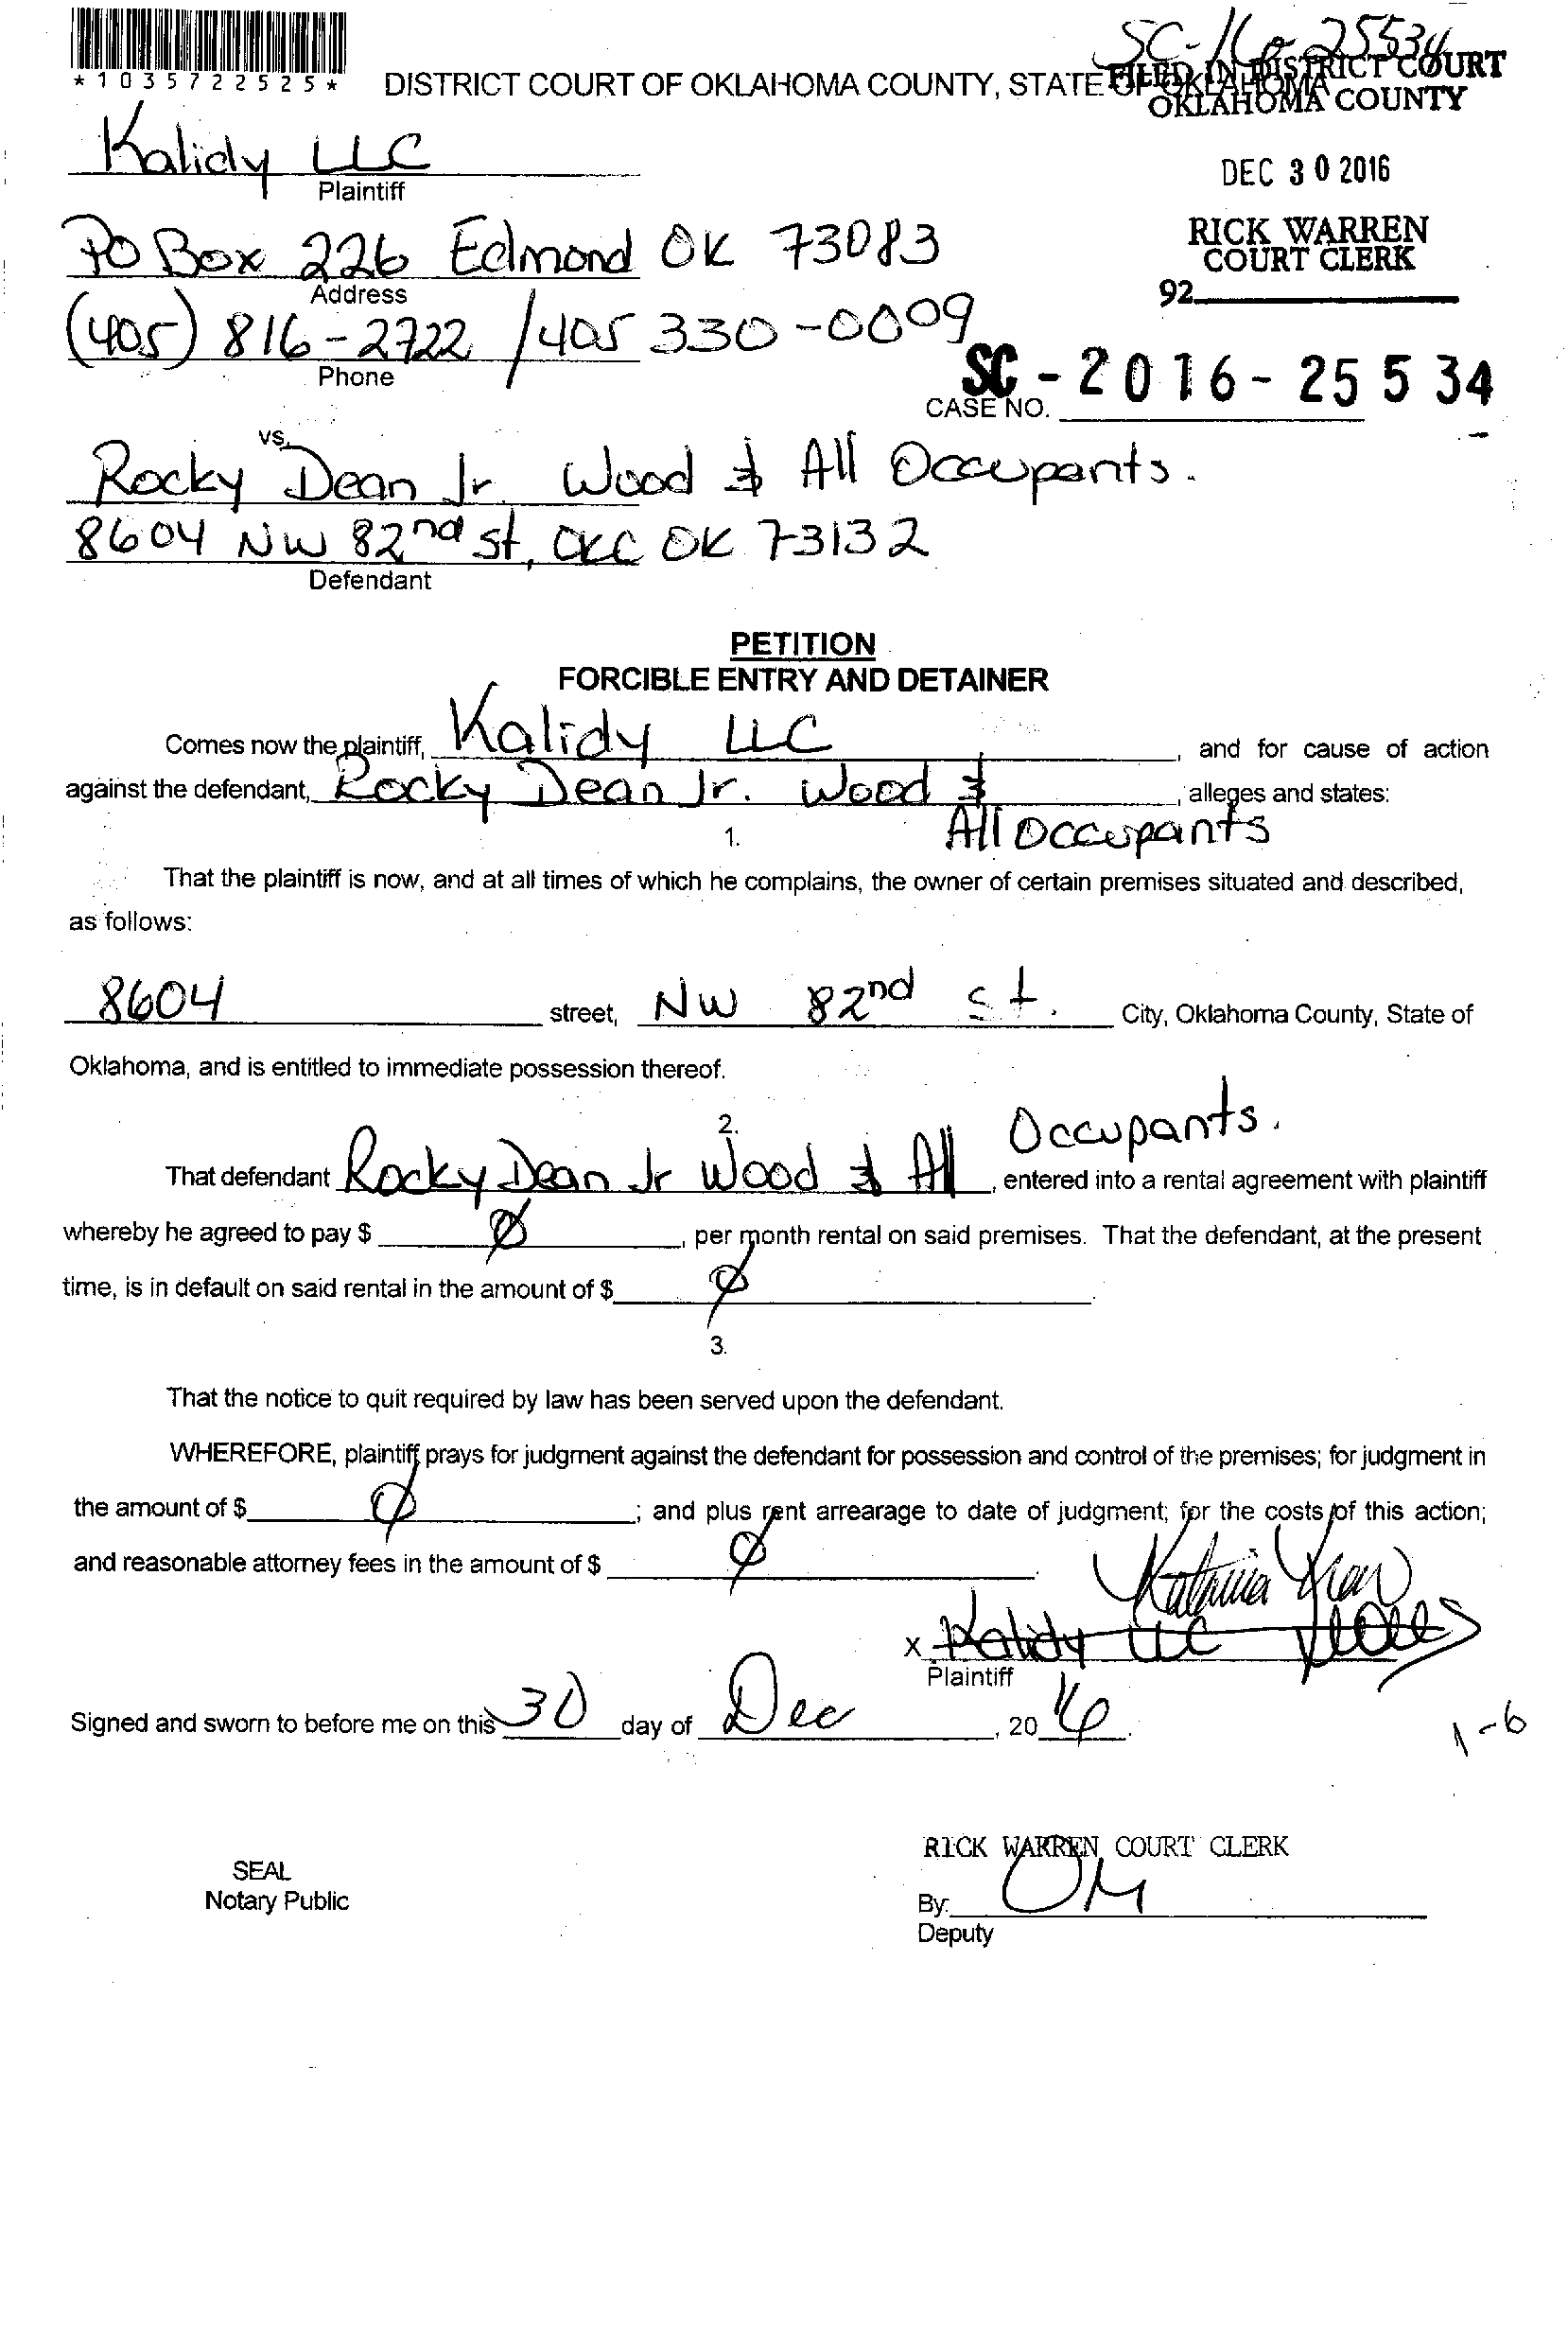 SC-16-25534
*1035722525*
DISTRICT COURT OF OKLAHOMA COUNTY, STATE OF OKLAHOMA
FILED IN DISTRICT COURT
OKLAHOMA COUNTY
Kalidy LLC
Plaintiff
DEC 30 2016
PO Box 226 Edmond OK 73083
Address
RICK WARREN
COURT CLERK
92
(405) 816-2722 / 405 330-0009
Phone
SC-2016-25534
CASE NO.
vs.
Rocky Dean Jr. Wood & All Occupants.
8604 NW 82nd St, OKC OK 73132
Defendant
PETITION
FORCIBLE ENTRY AND DETAINER
Comes now the plaintiff, Kalidy LLC, and for cause of action
against the defendant, Rocky Dean Jr. Wood &, alleges and states:
All Occupants
1.
That the plaintiff is now, and at all times of which he complains, the owner of certain premises situated and described,
as follows:
8604 street, NW 82nd St. City, Oklahoma County, State of
Oklahoma, and is entitled to immediate possession thereof.
2.
Occupants.
That defendant Rocky Dean Jr Wood & All, entered into a rental agreement with plaintiff
whereby he agreed to pay $ Ø, per month rental on said premises. That the defendant, at the present
time, is in default on said rental in the amount of $ Ø.
3.
That the notice to quit required by law has been served upon the defendant.
WHEREFORE, plaintiff prays for judgment against the defendant for possession and control of the premises; for judgment in
the amount of $ Ø; and plus rent arrearage to date of judgment; for the costs of this action;
and reasonable attorney fees in the amount of $ Ø.
x Kalidy LLC
Plaintiff
Signed and sworn to before me on this 30 day of Dec, 2016.
1-6
RICK WARREN COURT CLERK
SEAL
Notary Public
By:
Deputy